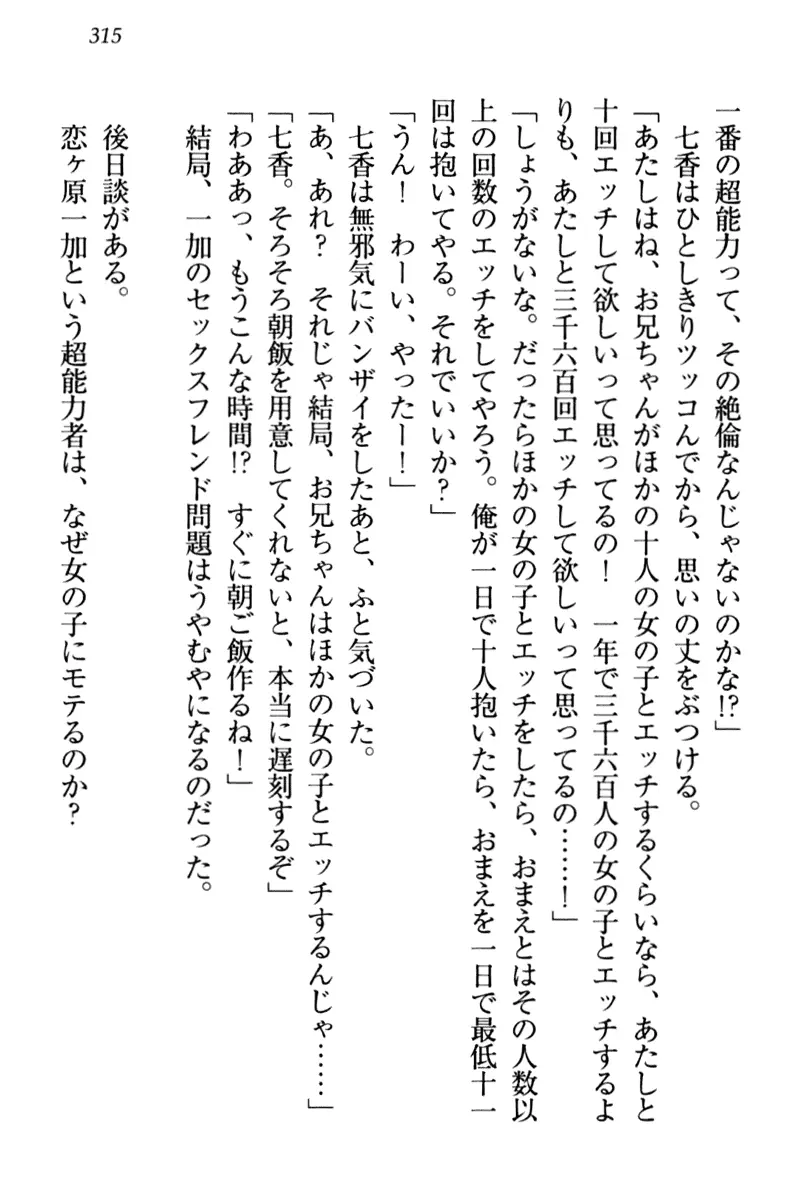 315
一番の超能力って、その絶倫なんじゃないのかな!?」
　七香はひとしきりツッコんでから、思いの丈をぶつける。
「あたしはね、お兄ちゃんがほかの十人の女の子とエッチするくらいなら、あたしと
十回エッチして欲しいって思ってるの！　一年で三千六百人の女の子とエッチするよ
りも、あたしと三千六百回エッチして欲しいって思ってるの……！」
「しょうがないな。だったらほかの女の子とエッチをしたら、おまえとはその人数以
上の回数のエッチをしてやろう。俺が一日で十人抱いたら、おまえを一日で最低十一
回は抱いてやる。それでいいか？」
「うん！　わーい、やったー！」
　七香は無邪気にバンザイをしたあと、ふと気づいた。
「あ、あれ？　それじゃ結局、お兄ちゃんはほかの女の子とエッチするんじゃ……」
「七香。そろそろ朝飯を用意してくれないと、本当に遅刻するぞ」
「わああっ、もうこんな時間!?　すぐに朝ご飯作るね！」
　結局、一加のセックスフレンド問題はうやむやになるのだった。
　後日談がある。
　恋ヶ原一加という超能力者は、なぜ女の子にモテるのか？